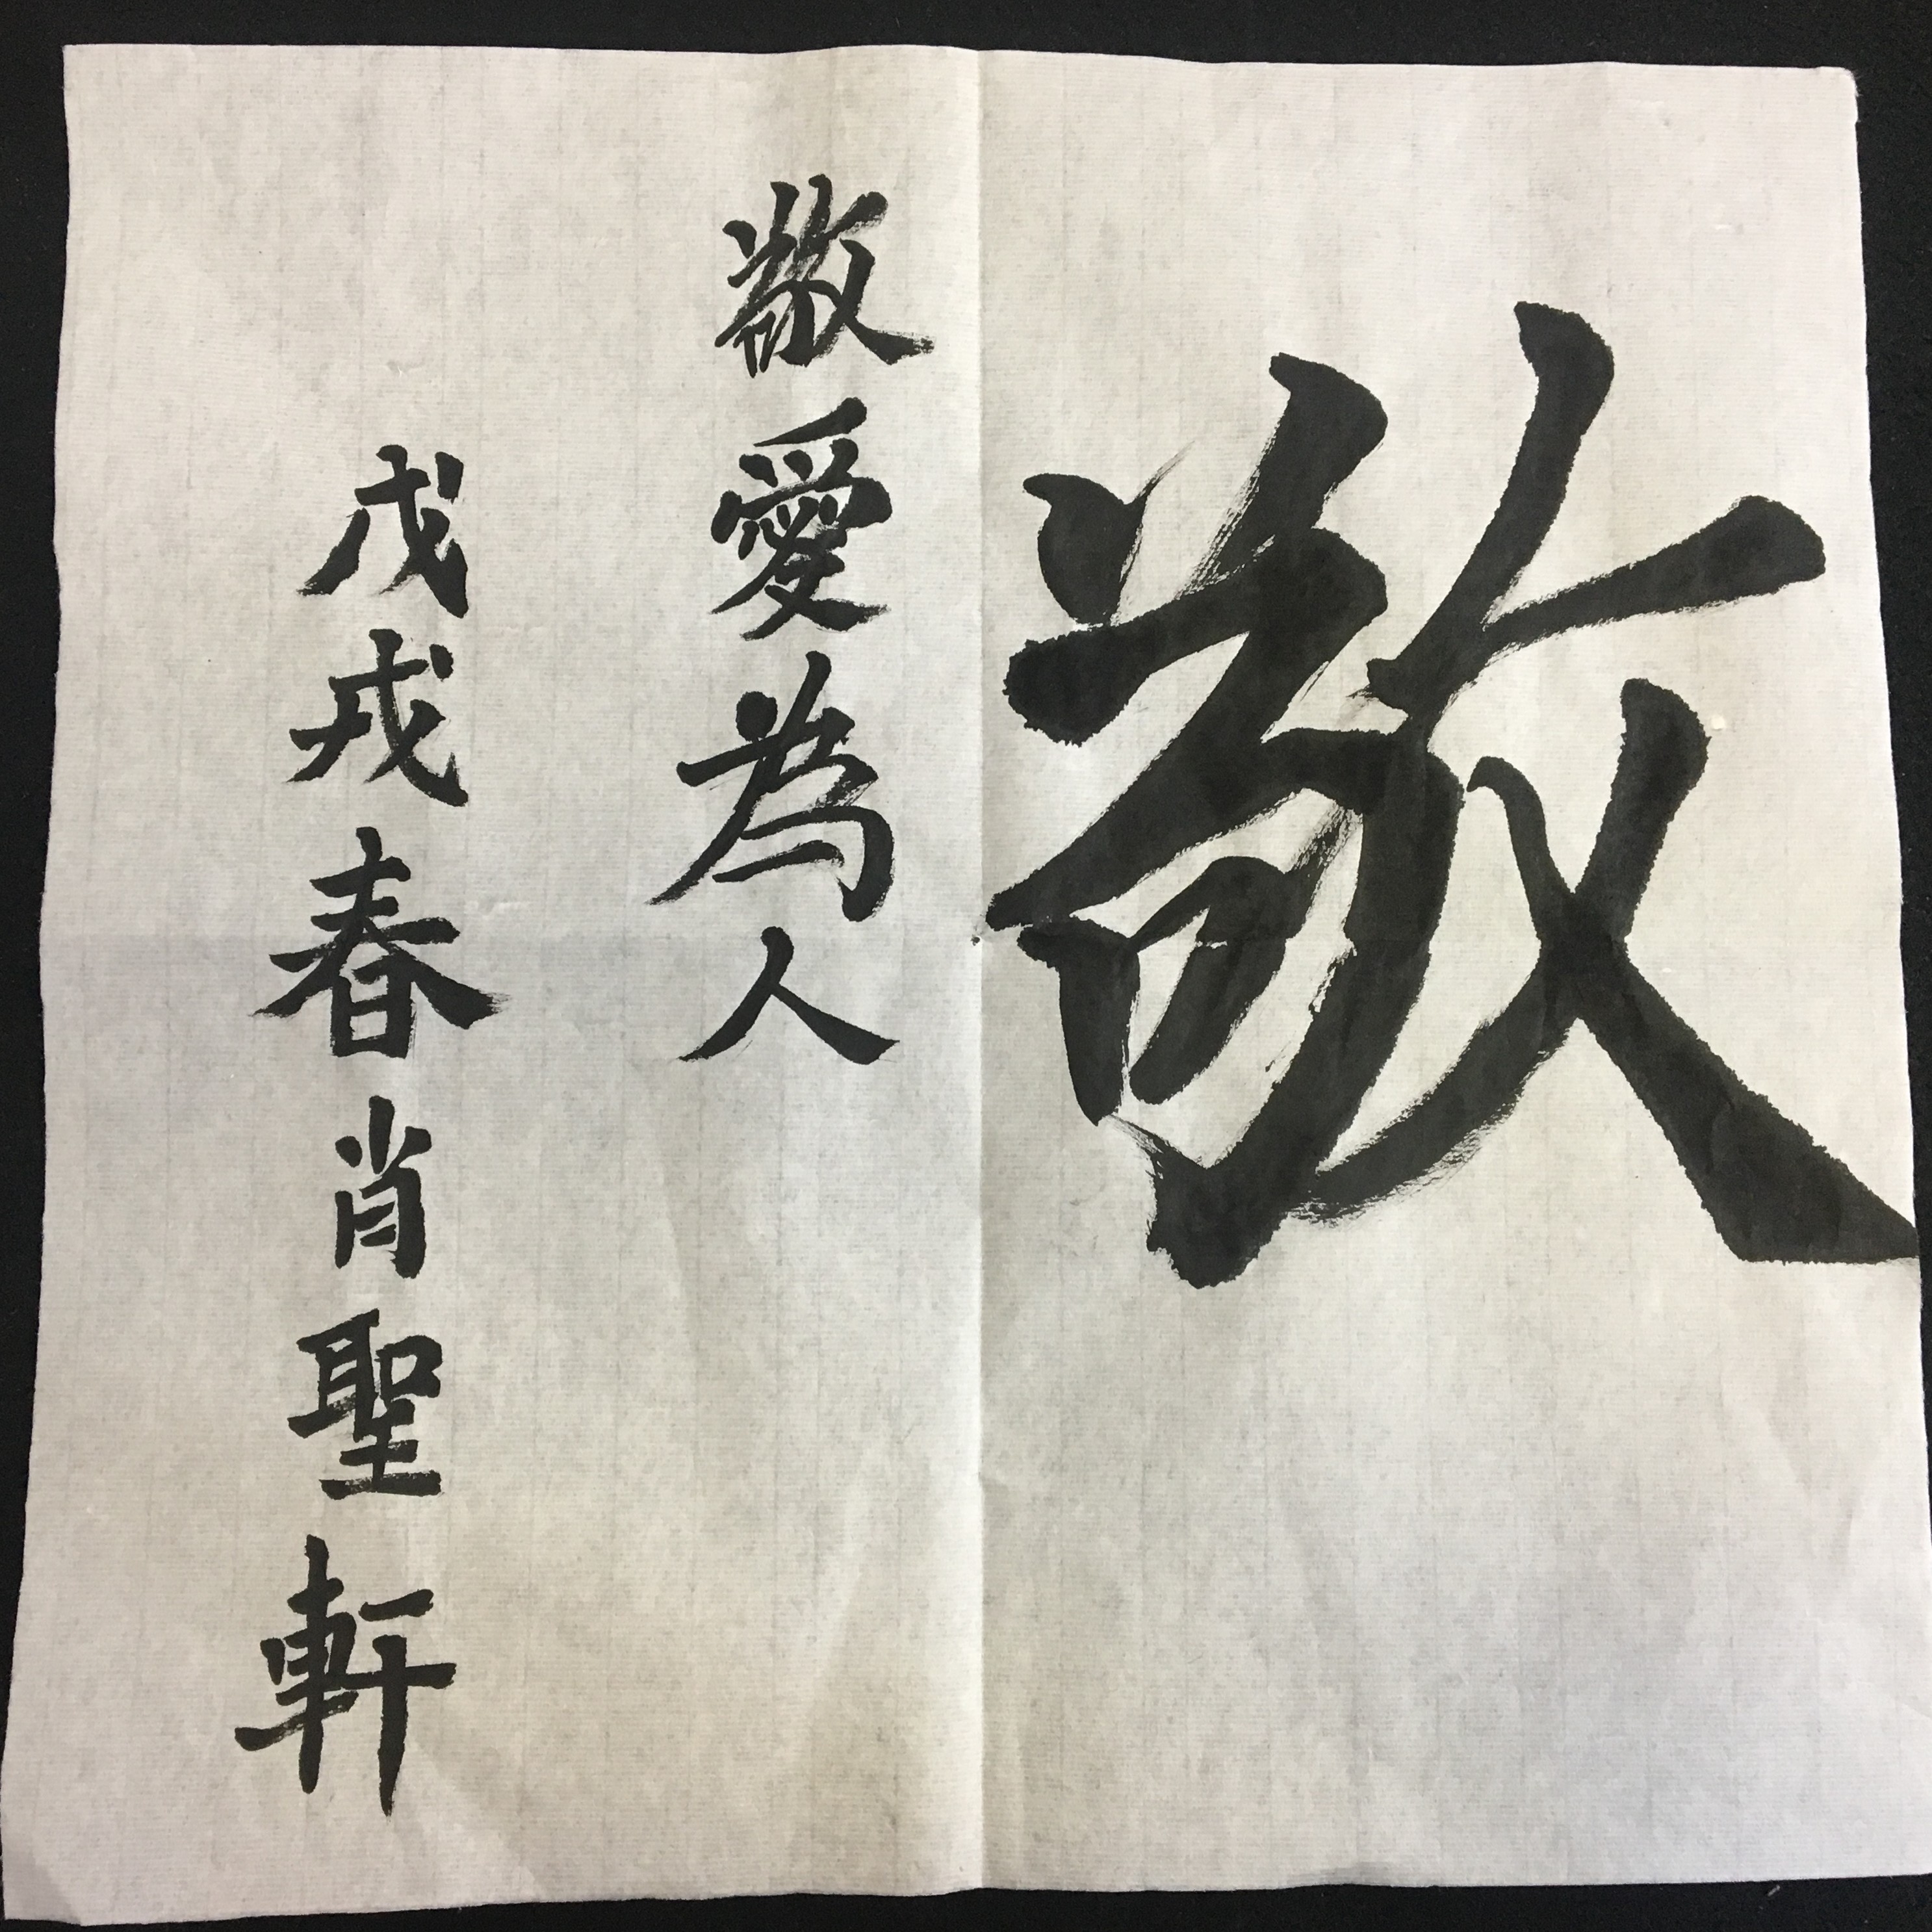 敬
敬愛為人
戊戌春肖聖軒